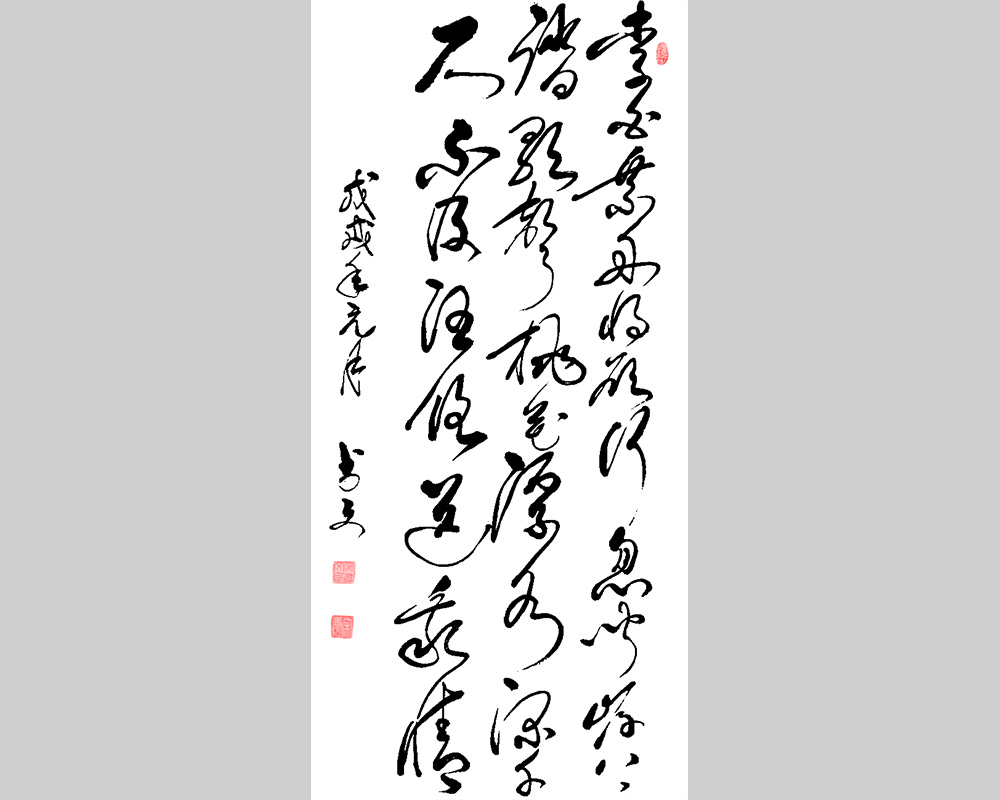 李白乘舟將欲行忽聞岸上
踏歌聲桃花潭水深千
尺不及汪倫送我情
戊戌年元月